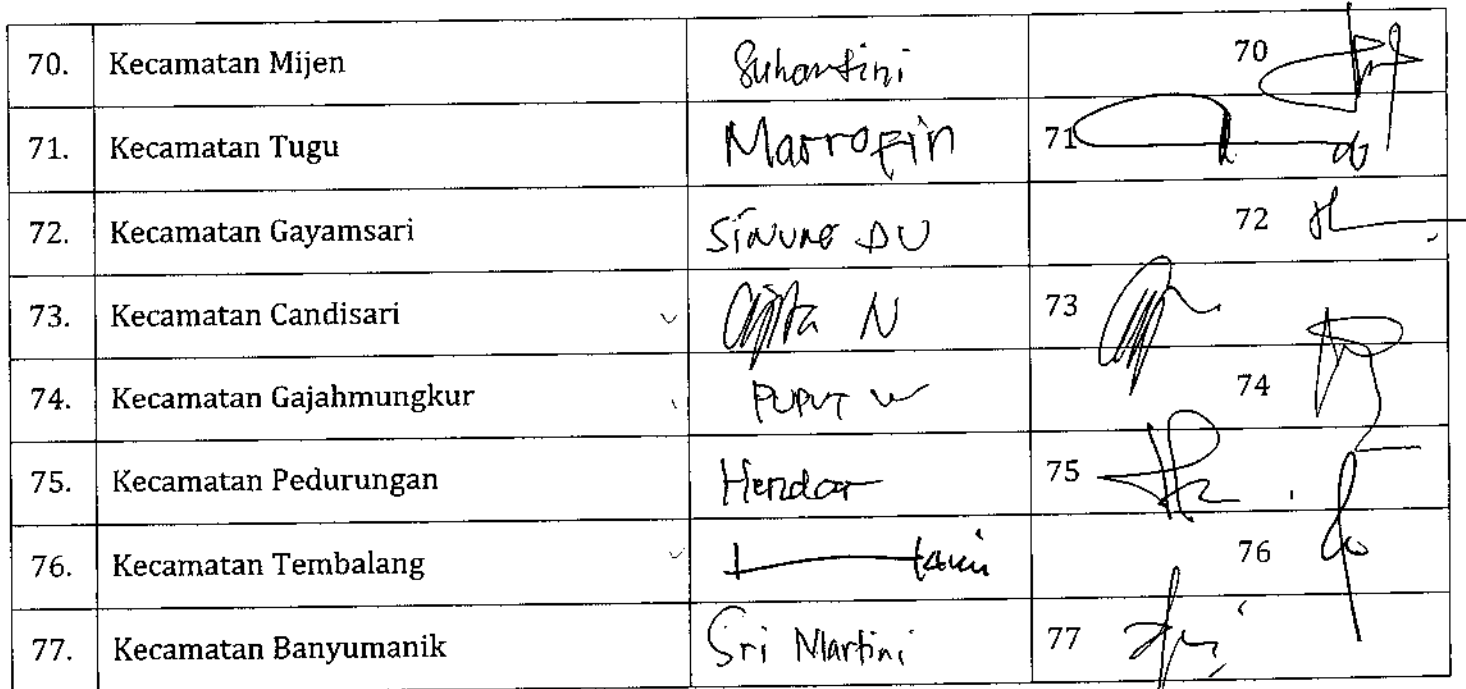 70. Kecamatan Mijen Suhartini 70
71. Kecamatan Tugu 71
72. Kecamatan Gayamsari 72
73. Kecamatan Candisari N 73
74. Kecamatan Gajahmungkur PUPUT W 74
75. Kecamatan Pedurungan Hendar 75
76. Kecamatan Tembalang 76
77. Kecamatan Banyumanik Sri Martini 77